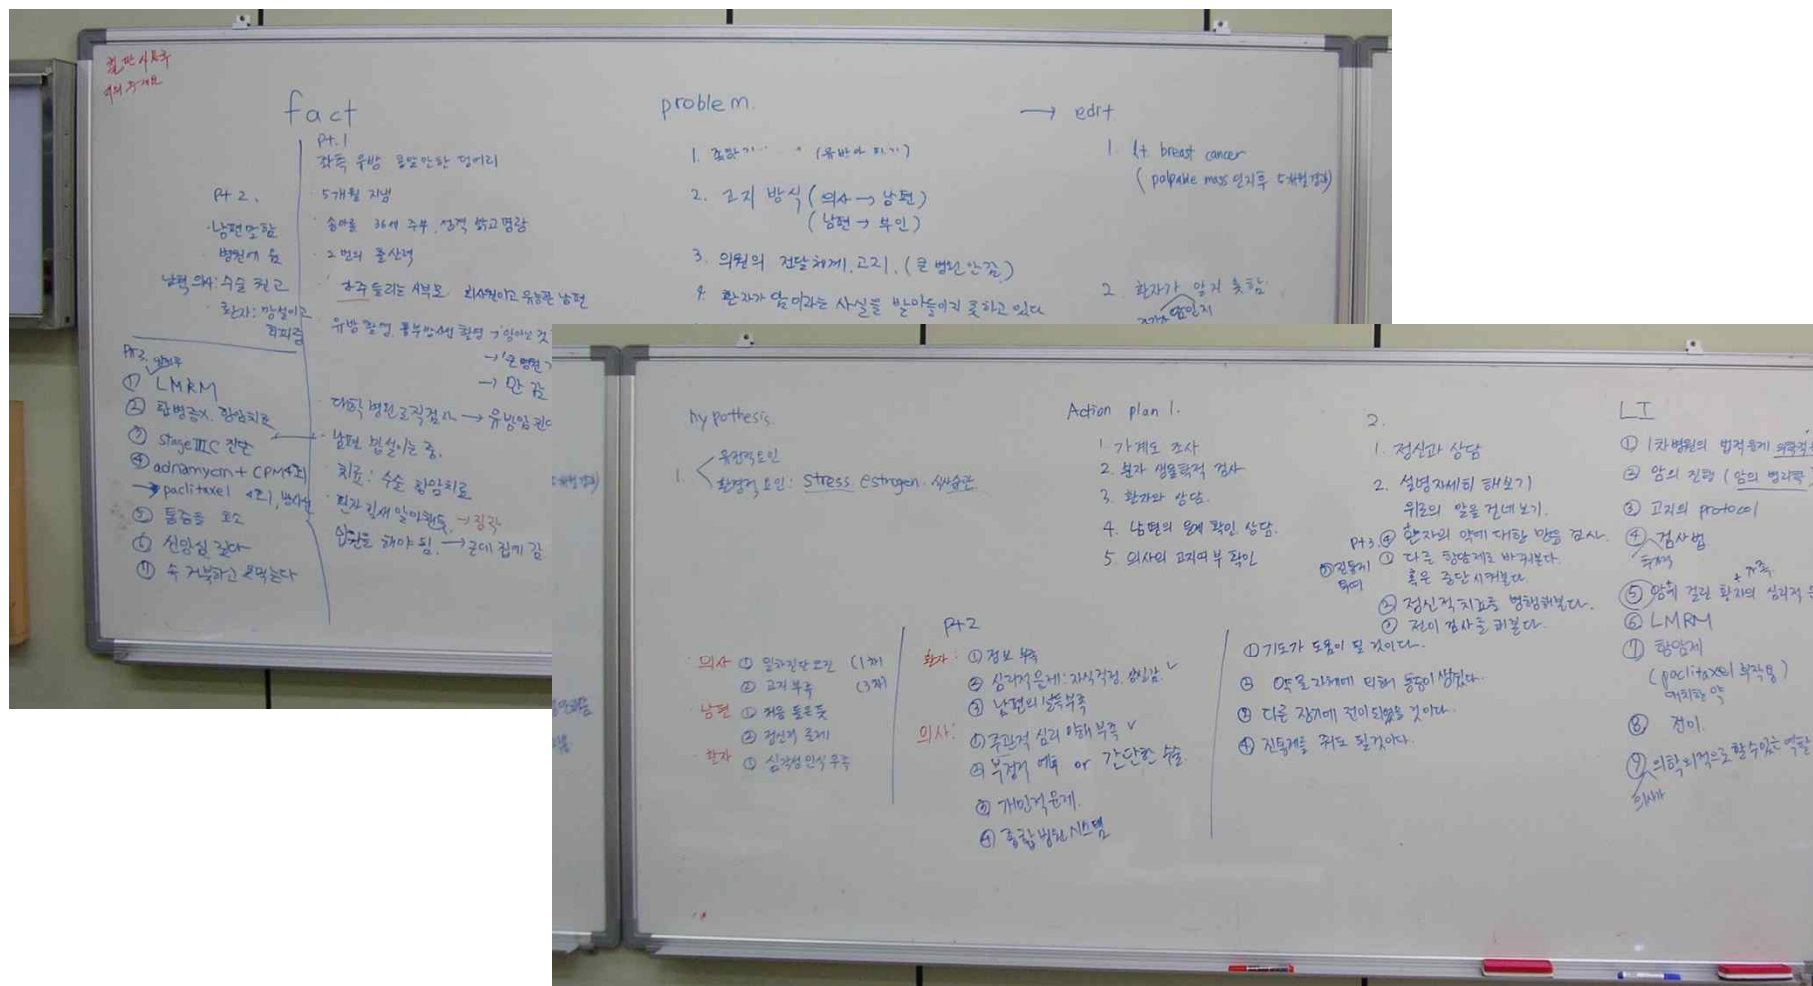 fact
pt.1
좌측 유방 콩알만한 덩어리
· 5개월 지남
· 송아름 36세 주부, 성격 밝고 명랑
· 2번의 출산력
· 자주 들리는 시부모 회사원이고 유능한 남편
유방 촬영
→ '큰 병원
→ 안 감
→ 유방암
· 남편 망설이는 중.
· 치료: 수술 항암치료
입원을 해야 됨. → 근데 집에 감
pt 2.
· 남편 말함
· 병원에 옴
남편, 의사: 수술 권고
· 환자: 망설이고
회피함
pt3.
① LMRM
② 합병증X. 항암치료
③ stage ⅢC 진단
④ adriamycin + CPM
→ paclitaxel
⑤ 통증을 호소
⑥ 신앙심 깊다
⑦ 속 거북하고 못먹는다
problem.
2. 고지 방식 (의사 → 남편)
(남편 → 부인)
3. 의원의 전달체계, 고지. (큰 병원 안감)
4. 환자가 암이라는 사실을 받아들이지 못하고 있다
→ edit
1. Lt breast cancer
(palpable mass 인지후 5개월 경과)
2. 환자가 알지 못함.
hypothesis.
1. 유전적요인
환경적 요인: stress estrogen. 식습관
Action plan 1.
1. 가계도 조사
2. 분자 생물학적 검사
3. 환자와 상담.
4. 남편의 문제 확인. 상담.
5. 의사의 고지여부 확인
2.
1. 정신과 상담
2. 설명자세히 해보기
위로의 말을 건네보기.
pt3. ④ 환자의 약에 대한 반응 검사.
① 다른 항암제로 바꿔본다.
혹은 중단시켜본다.
⑤ 진통제 투여
② 정신적 치료를 병행해본다.
③ 전이 검사를 해본다.
LI
① 1차병원의 법적문제
② 암의 진행 (암의 병리학
③ 고지의 protocol
④ 검사법
⑤ 암에 걸린 환자의 심리적
+ 가족
⑥ LMRM
⑦ 항암제
(paclitaxel 부작용)
대체할 약
⑧ 전이.
⑨ 의학외적으로 할 수 있는 역할
의사가
· 의사 ① (1차)
② 고지 부족 (3차)
· 남편 ① 처음 들은 듯
② 정신적 문제
· 환자 ① 심각성 인식 부족
pt2
환자: ① 정보 부족
② 심리적문제: 자식걱정, 상실감. ✓
③ 남편의 설득부족
의사: ① 주관적 심리 이해 부족 ✓
② 부정적 예후 or 간단한 수술.
③ 개인적 문제.
④ 종합병원 시스템
① 기도가 도움이 될 것이다.
② 약물 자체에 의해 통증이 생겼다.
③ 다른 장기에 전이되었을 것이다.
④ 진통제를 줘도 될것이다.